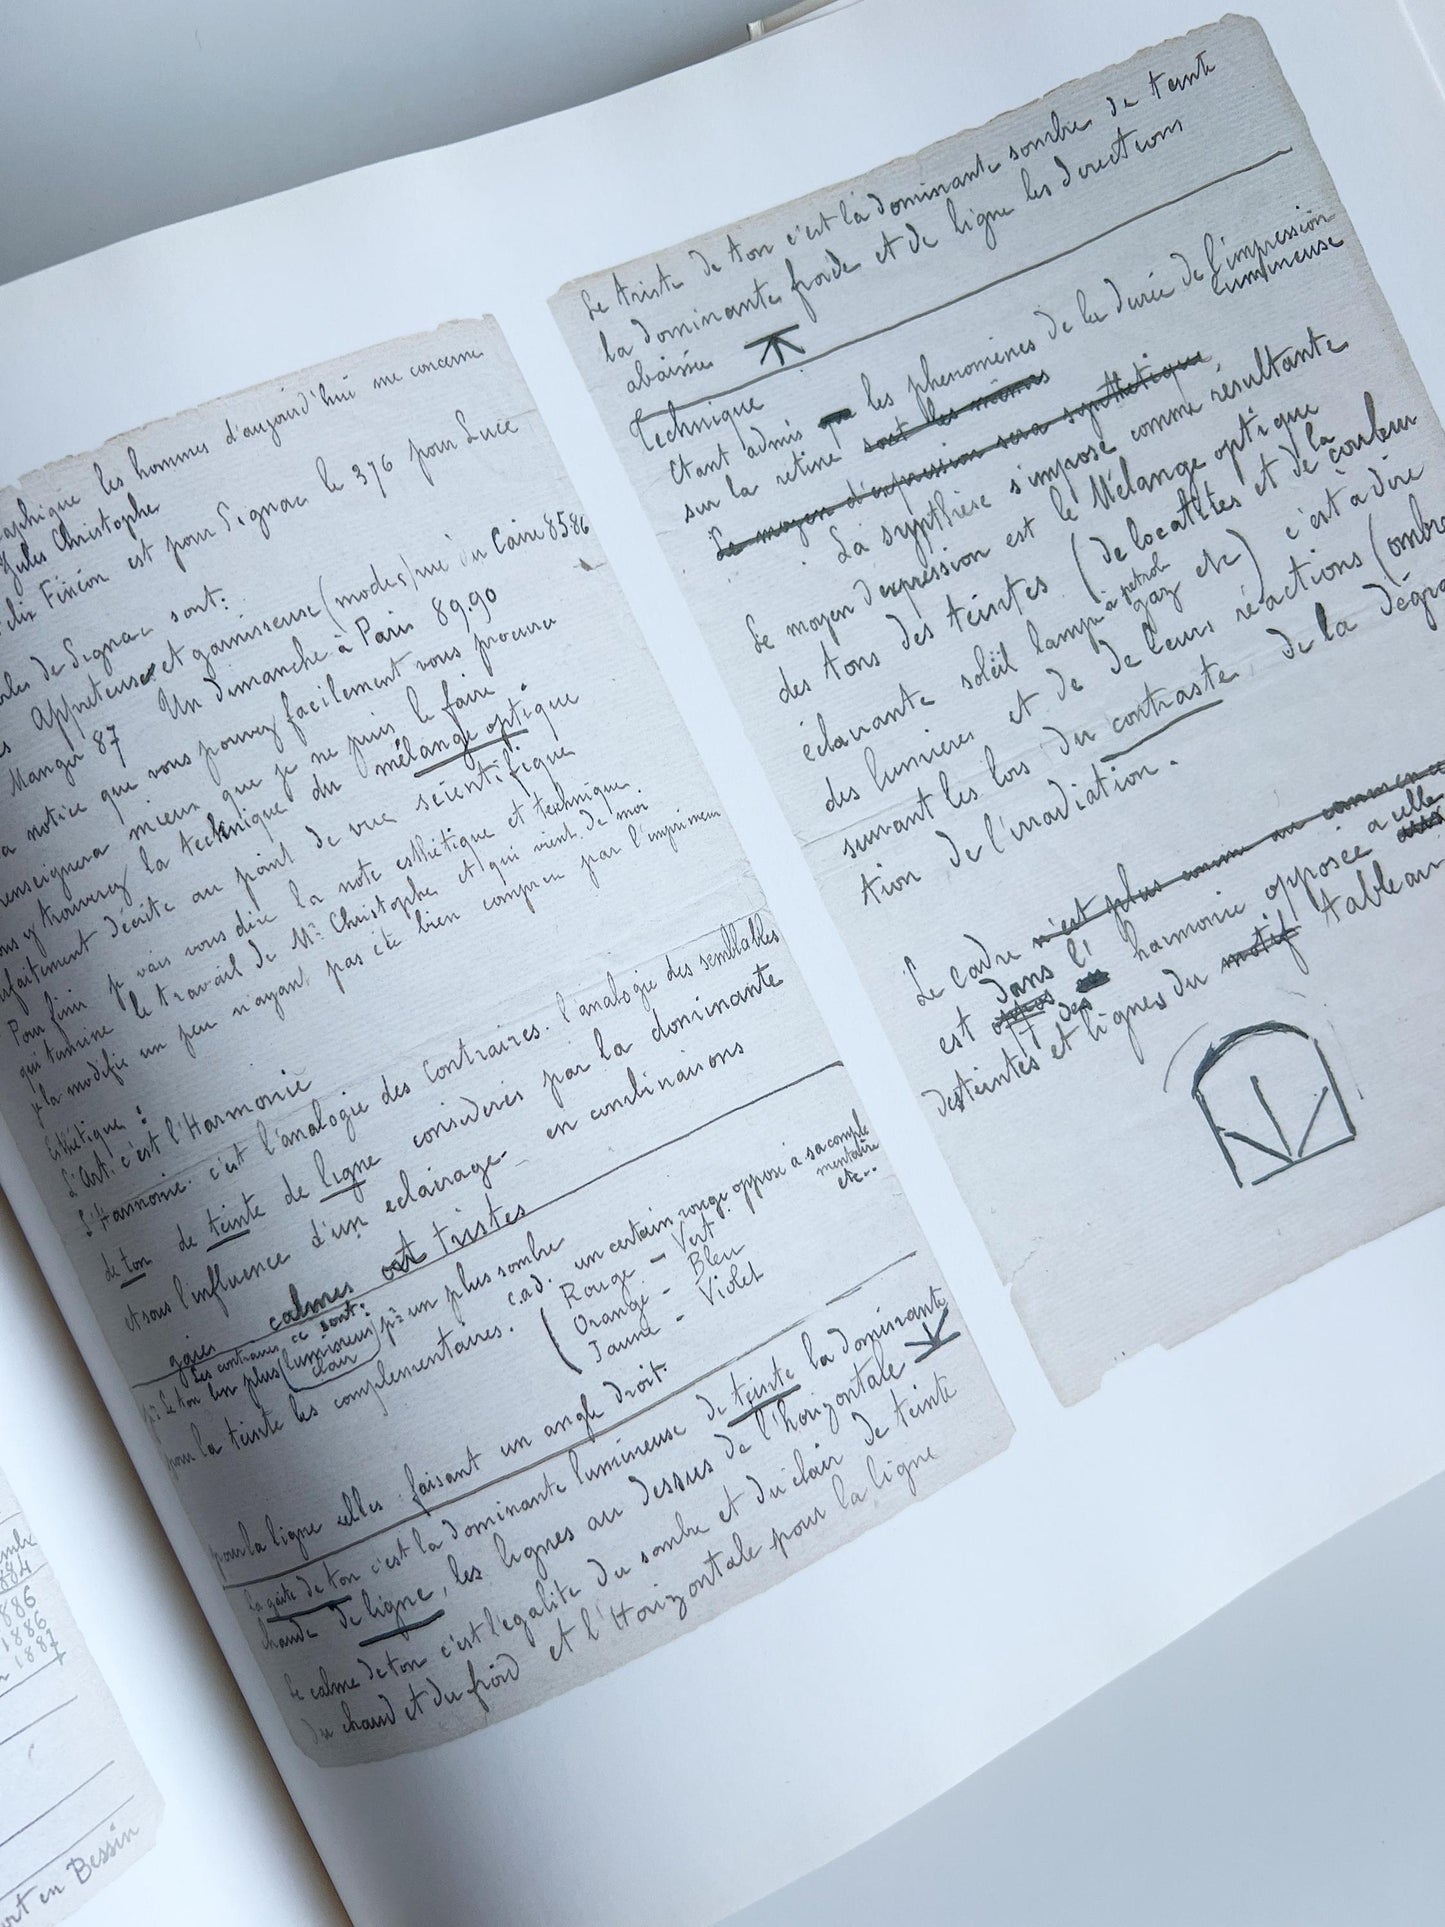 les hommes d'aujourd'hui me concerne
Jules Christophe
est pour Signac le 376 pour Luce
de Signac sont:
Appreteuse et garnisseuse (modes) rue du Caire 85 86
Manger 87 Un dimanche à Paris 89.90
notice que vous pouvez facilement vous procurer
renseignera mieux que je ne puis le faire
vous y trouverez la technique du mélange optique
parfaitement décrite au point de vue scientifique
Pour finir je vais vous dire la note esthétique et technique
qui termine le travail de Mr Christophe et qui vient de moi
je la modifie un peu n'ayant pas été bien compris par l'imprimeur
Esthétique:
L'Art. c'est l'Harmonie
L'Harmonie. c'est l'analogie des Contraires. l'analogie des semblables
de ton de teinte de ligne considérés par la dominante
et sous l'influence d'un eclairage en combinaisons
gaies calmes ou tristes
Les contraires ce sont:
pr le ton un plus lumineux pr un plus sombre
clair
pour la teinte les complementaires. c.a.d. un certain rouge opposé à sa complé
mentaire
etc..
Rouge - Vert
Orange - Bleu
Jaune - Violet
pour la ligne celles faisant un angle droit.
La gaité de ton c'est la dominante lumineuse de teinte la dominante
chaude de ligne, les lignes au dessus de l'horizontale
Le calme de ton c'est l'egalité du sombre et du clair de teinte
du chaud et du froid et l'Horizontale pour la ligne
Le triste de ton c'est la dominante sombre de teinte
la dominante froide et de ligne les directions
abaissées
Technique
Etant admis les phenomènes de la durée de l'impression
lumineuse
sur la retine sont les mêmes
Le moyen d'expression sera synthetique
La synthèse s'impose comme résultante
Le moyen d'expression est le Mélange optique
des tons des teintes (de localités et de la couleur
éclairante soleil lampe à petrole
gaz etc) c'est à dire
des lumières et de leurs réactions (ombres
suivant les lois du contraste, de la dégra
tion de l'irradiation.
Le cadre n'est plus comme au commence
est dans l' harmonie opposée a celle
des
des teintes et lignes du motif tableau
1886
1886
1887
Port en Bessin